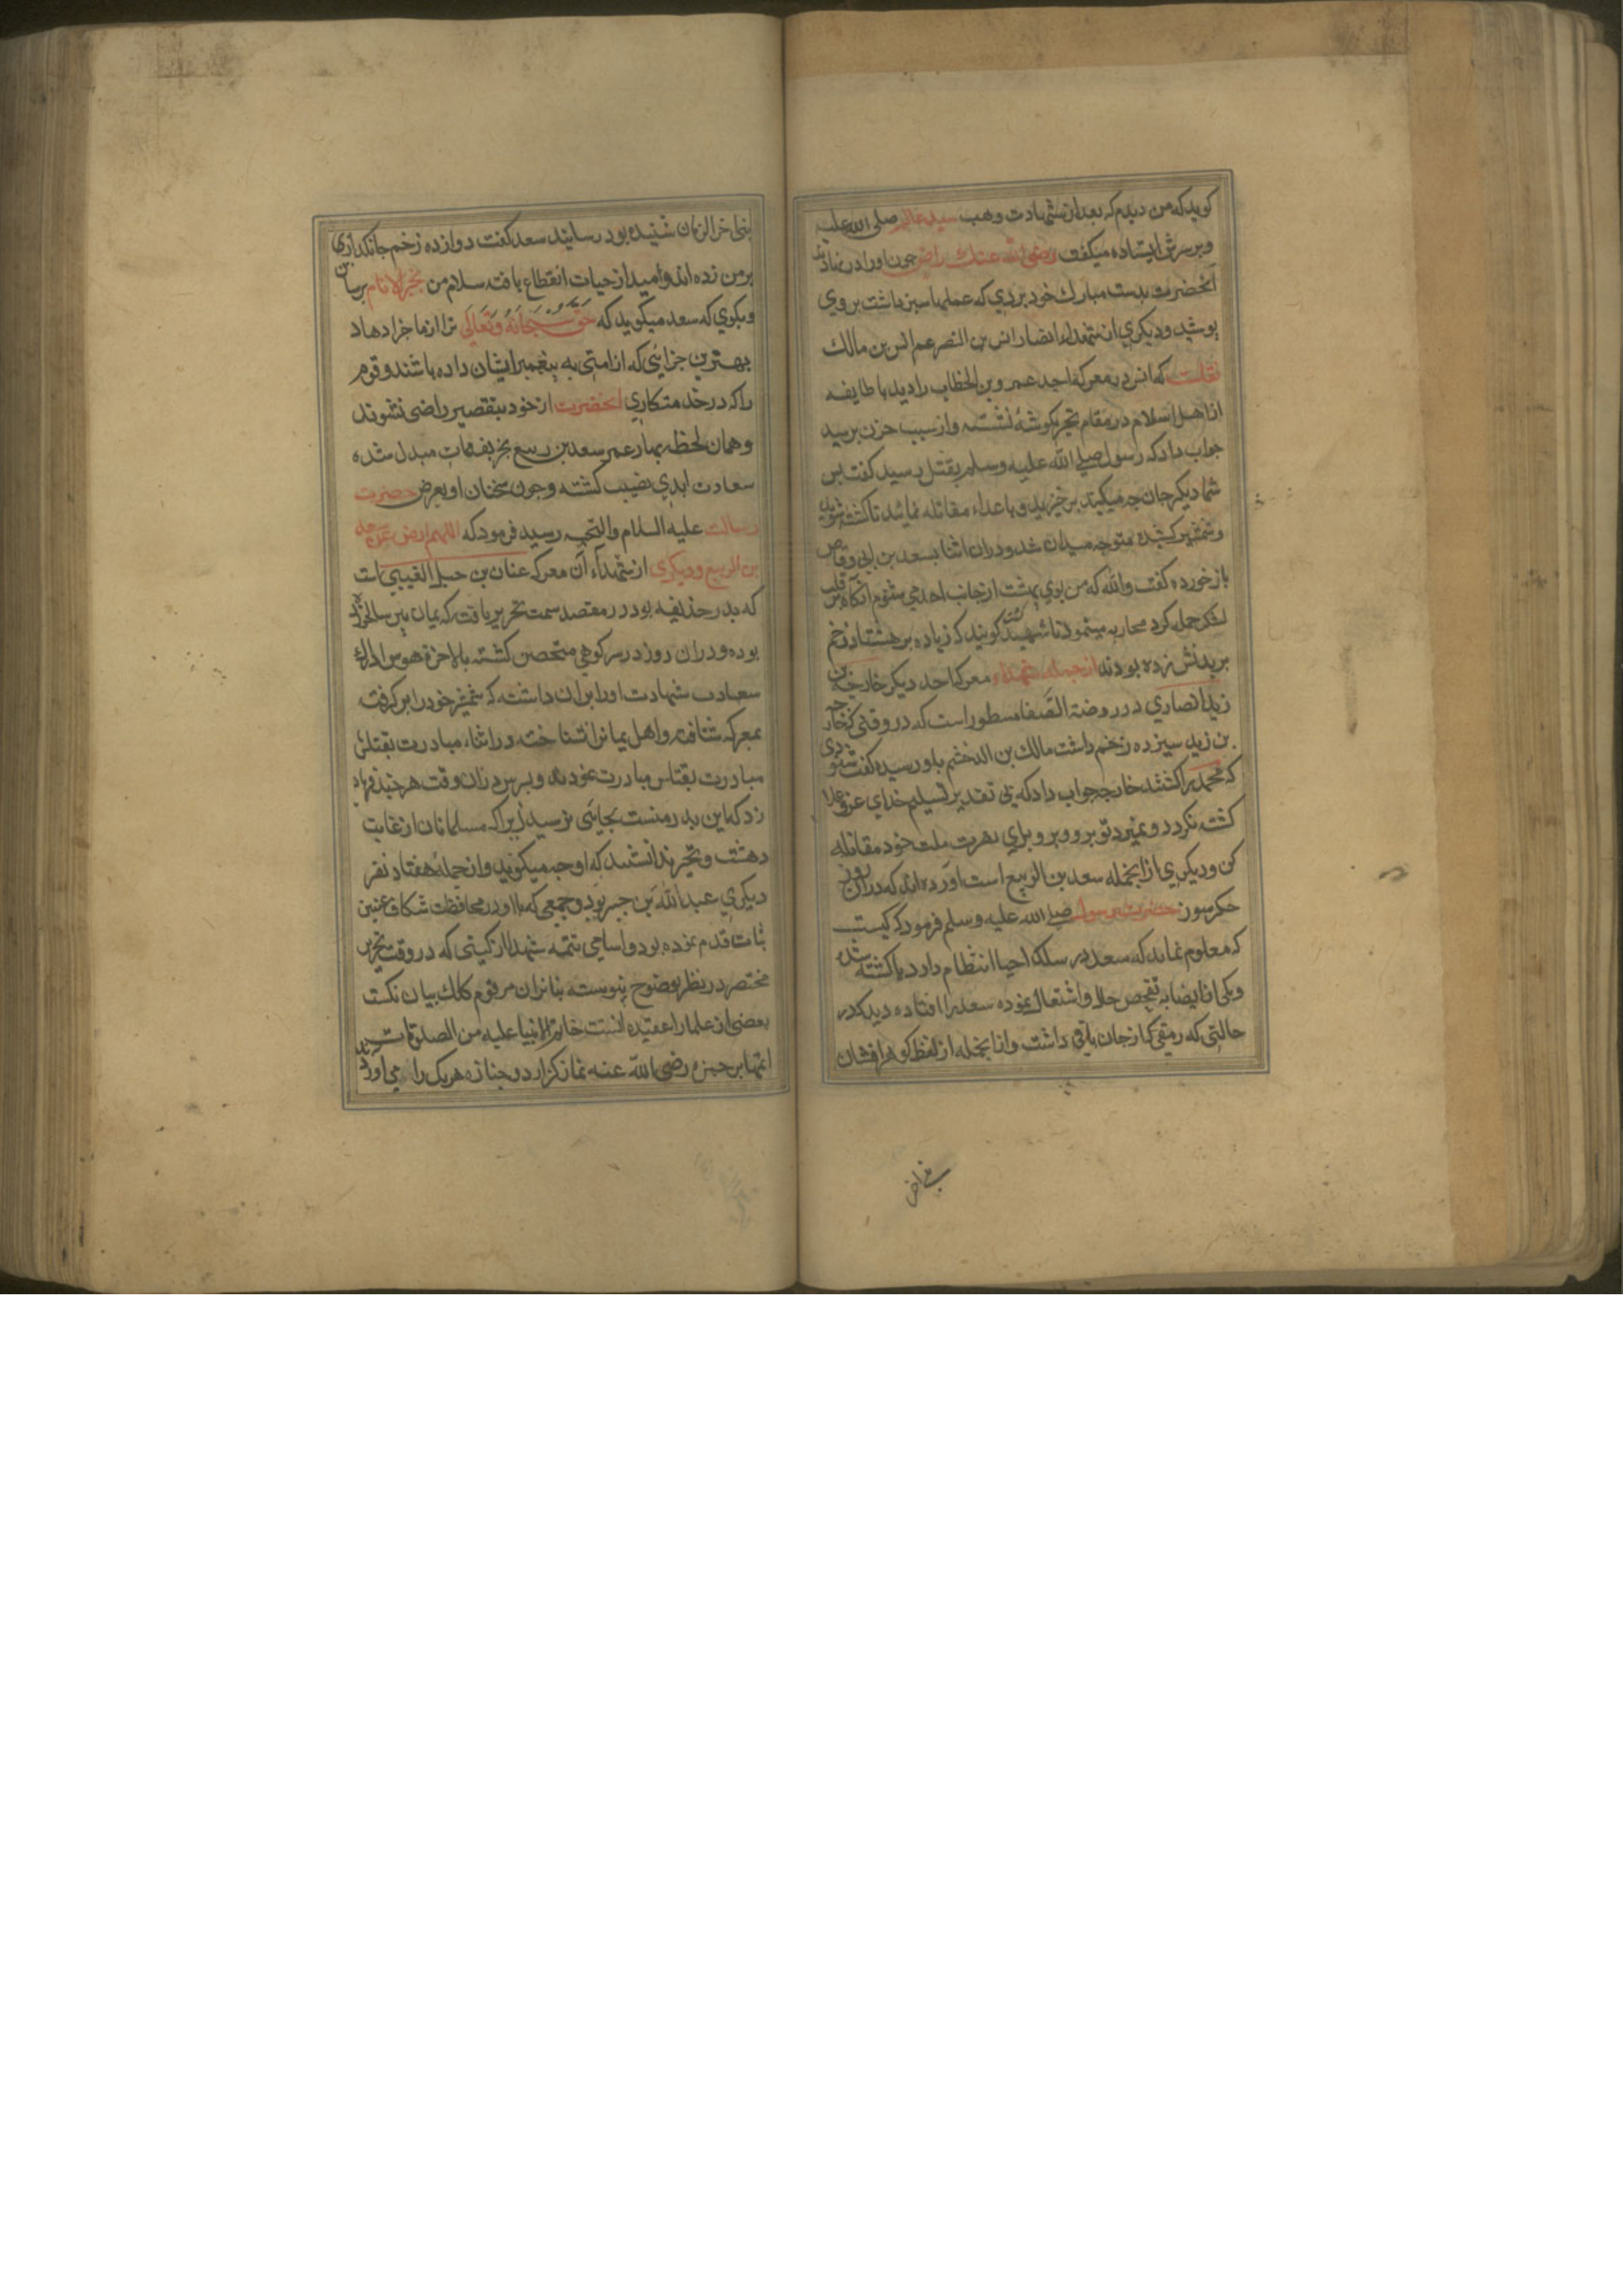 کوید که من دیدم که بعد از شهادت وهب سید عالم صلی الله علیه
وبر سرش ایستاده میکفت رضی الله عنک راض چون اورا در نهادند
آنحضرت بدست مبارک خود بردی که عملها سبز داشت بروی
پوشید ودیکری از شهداء انصار انس بن النضر عم انس بن مالک
نقلست که انس در معرکه احد عمر وبن الخطاب را دید با طایفه
از اهل اسلام در مقام تحیر بکوشهٔ نشسته واز سبب حزن پرسید
جواب داد که رسول صلی الله علیه وسلم بقتل رسید کفت پس
شما دیکر جان چه میکنید برخیزید وبا اعداء مقاتله نمائید تا کشته شوید
وشمشیر کشیده متوجه میدان شد ودران اثنا بسعد بن ابی وقاص
باز خورده کفت والله که من بوی بهشت از جانب احد می شنوم آنکاه بر قلب
لشکر حمله کرد محاربه مینمود تا شهید کشت کویند که زیاده بر هشتاد زخم
بر بدنش زده بودند از جمله شهداء معرکه احد دیکر خارجه بن
زید انصاری در روضة الصفا مسطور است که در وقتی که خارجه
بن زید سیزده زخم داشت مالک بن الدخشم باو رسیده کفت شنودی
که محمد را کشتند خارجه جواب داد که بی تقدیر تسلیم خدای عز وعلا
کشته نکردد ونمیرد تو برو وبرو برای نصرت ملت خود مقاتله
کن ودیکری از انجمله سعد بن الربیع است آورده اند که دران روز
جکر سوز حضرت رسول صلی الله علیه وسلم فرمود که کیست
که معلوم نماید که سعد در سلک احیا انتظام دارد یا کشته شده
ویکی از انصار به تفحص حال او اشتغال نموده سعد را افتاده دید که در
حالتی که رمقی که از جان باقی داشت وانا بجمله از لفظ کوهر افشان
بنی اخر الزمان شنیده بود رسانید سعد کفت دوازده زخم جانکدازی
بر من زده اند وامید از حیات انقطاع یافته سلام من بخیر الانام برسان
وبکوی که سعد میکوید که حق سبحانه وتعالی ترا از ما جزا دهاد
بهترین جزائی که از امتی به پیغمبر ایشان داده باشند وقوم
را که در خدمتکاری آنحضرت از خود بتقصیر راضی نشوند
وهمان لحظه بهار عمر سعد بن ربیع بخریف ممات مبدل شده
سعادت ابدی نصیب کشته وچون سخنان او بعرض حضرت
رسالت علیه السلام والتحیه رسید فرمود که اللهم ارض عن سعد
بن الربیع ودیکری از شهداء آن معرکه عنان بن حبیل العبسی است
که پدر حذیفه بود در مقصد سمت تحریر یافت که یمان پیر سالخورد
بوده ودران روز در سر کوهی متحصن کشته بالاخره هوس ادراک
سعادت شهادت اورا بران داشت که شمشیر خود را بر کرفت
بمعرکه شتافت واهل یمانرا نشناخته دراثناء مبادرت بقتلش
مبادرت بقتلش مبادرت نمودند وپسرش دران وقت هرچند فریاد
زد که این پدر منست بجائی نرسید زیرا که مسلمانان از غایت
دهشت وتحیر ندانستند که او چه میکوید وانجمله هفتاد نفر
دیکری عبدالله بن جبیر بود وجمعی که با او در محافظت شکاف عینین
ثابت قدم نموده بود واسامی تتمه شهدا از کتبی که در وقت تحریر
مختصر در نظر بوضوح نپیوسته بنا بران مرقوم کلک بیان نکشت
بعضی از علما را عقیده آنست خاتم الانبیا علیه من الصلوة
انتها بر حمزه رضی الله عنه نماز کزارد وجنازه هریک را می آورد